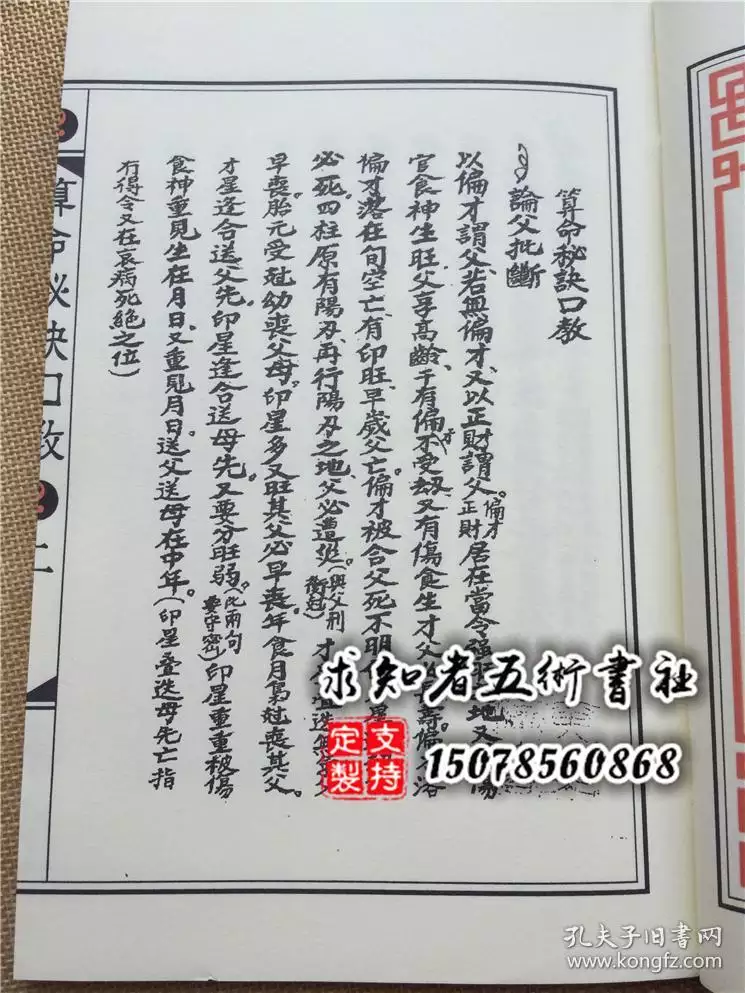 算命秘訣口教
論父批斷
以偏才謂父、若無偏才、又以正財謂父。偏才正財居在當令強旺地又
官食神生旺、父享高齡、于有偏才不受劫、又有傷食生才父
偏才落在旬空亡、有印旺、早歲父亡。偏才被合父死不明
必死。四柱原有陽刃、再行陽刃之地、父必遭(與父刑衝尅)才
早喪。胎元受尅幼喪父母。印星多又旺其父必早喪。年食月梟尅喪其父。
才星逢合送父先。印星逢合送母先。又要分旺弱。(此兩句要守密)印星重重被傷
食神重見生在月日、又重見月日。送父送母在中年。(印星疊迭母先亡指
有得令又在衰病死絕之位)
算命秘訣口教
二
求知者五術書社
支持定製
15078560868
孔夫子旧書网
www.kongfz.com